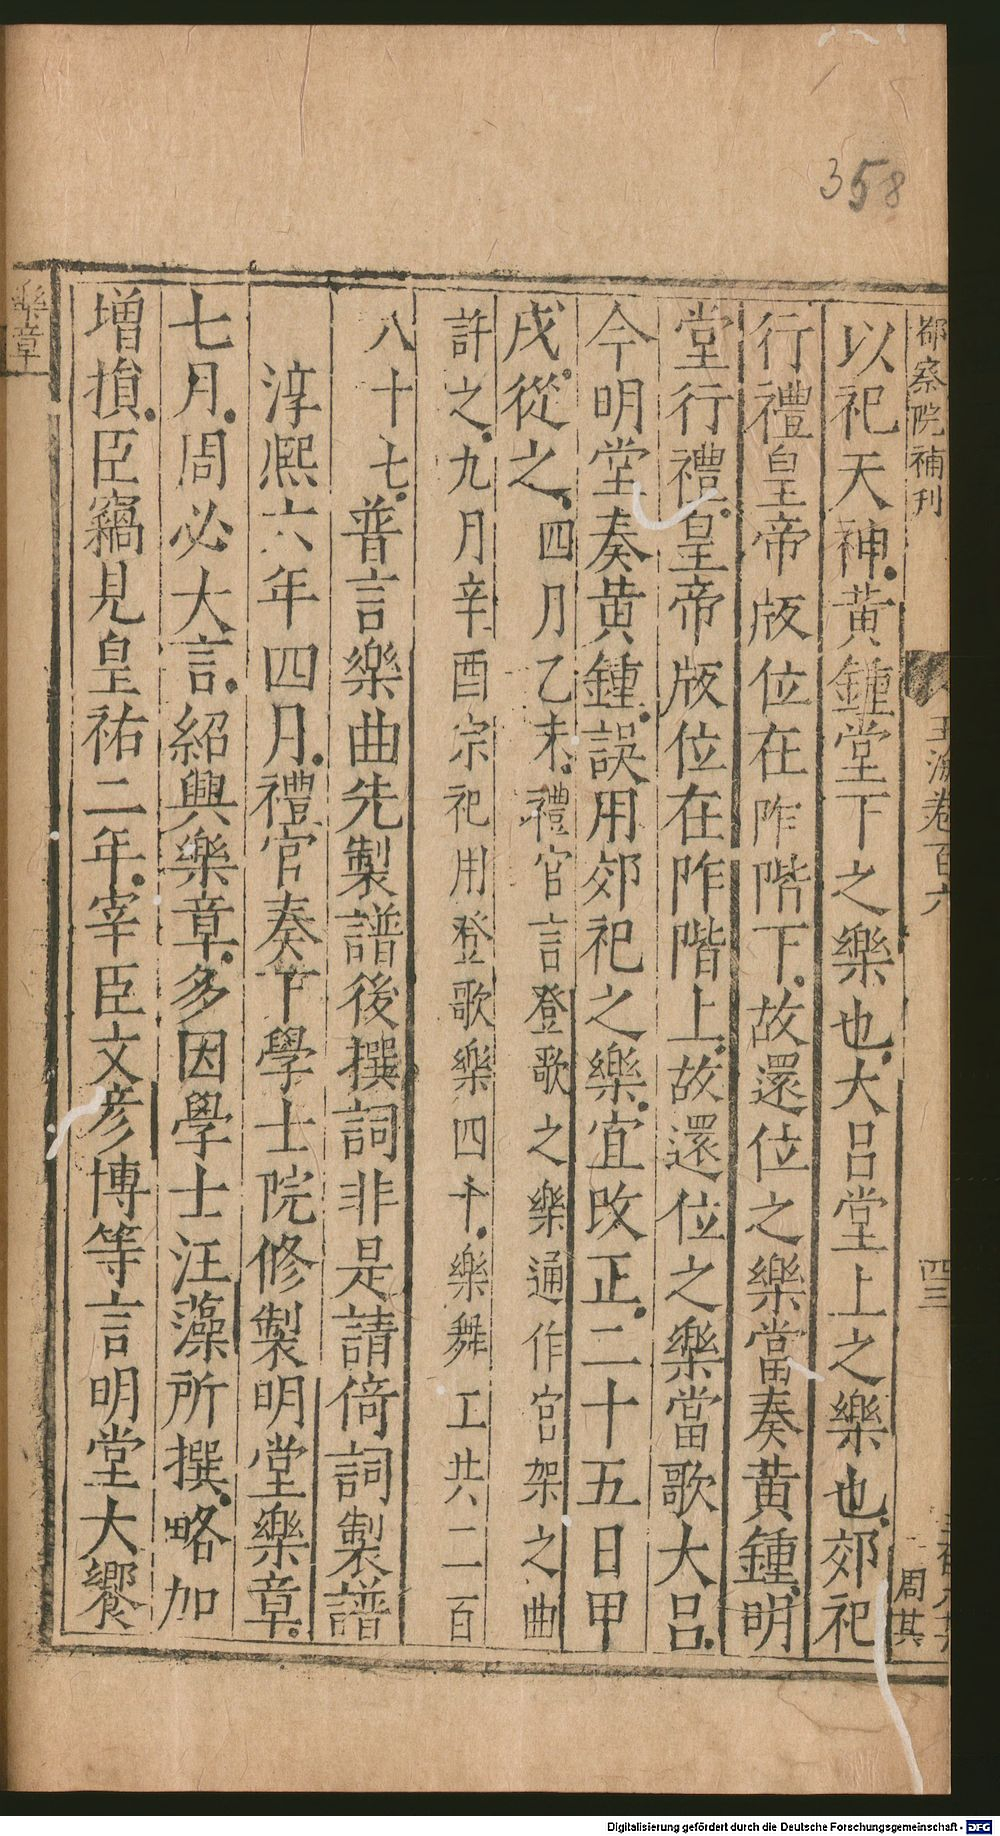 358
都察院補刊
玉海卷百六
四三
周其
以祀天神黄鍾堂下之樂也大呂堂上之樂也郊祀
行禮皇帝版位在阼階下故還位之樂當奏黄鍾明
堂行禮皇帝版位在阼階上故還位之樂當歌大呂
今明堂奏黄鍾誤用郊祀之樂宜改正二十五日甲
戌從之四月乙未禮官言登歌之樂通作宮架之曲
許之九月辛酉宗祀用登歌樂四十樂舞工共二百
八十七普言樂曲先製譜後撰詞非是請倚詞製譜
淳熈六年四月禮官奏下學士院修製明堂樂章
七月周必大言紹興樂章多因學士汪藻所撰略加
增損臣竊見皇祐二年宰臣文彦博等言明堂大饗
樂章
Digitalisierung gefördert durch die Deutsche Forschungsgemeinschaft - DFG